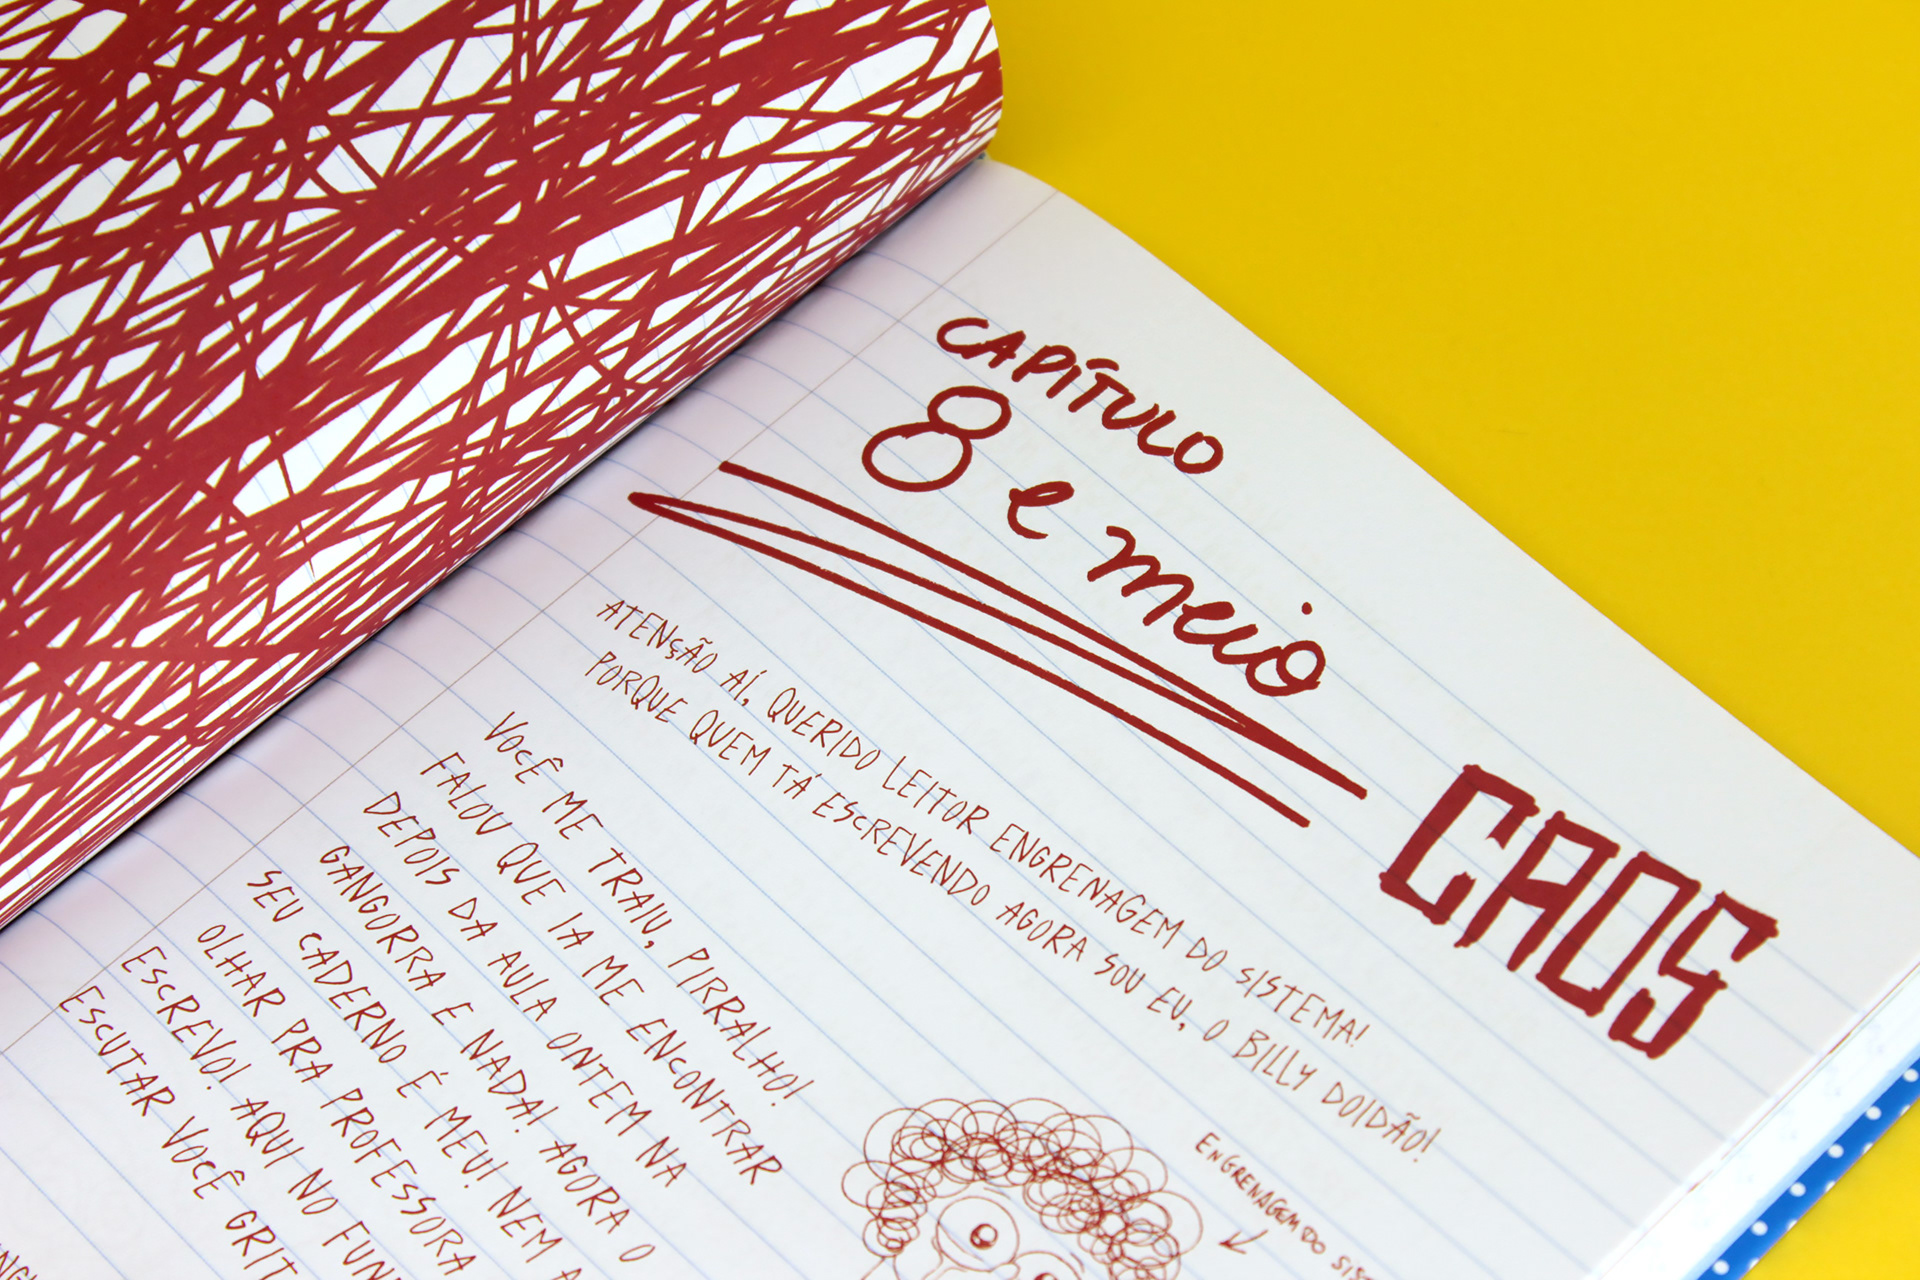 CAPÍTULO
8 e meio
CAOS
ATENÇÃO AÍ, QUERIDO LEITOR ENGRENAGEM DO SISTEMA!
PORQUE QUEM TÁ ESCREVENDO AGORA SOU EU, O BILLY DOIDÃO!
VOCÊ ME TRAIU, PIRRALHO!
FALOU QUE IA ME ENCONTRAR
DEPOIS DA AULA ONTEM NA
GANGORRA E NADA! AGORA O
SEU CADERNO É MEU! NEM A
OLHAR PRA PROFESSORA
ESCREVO! AQUI NO FUN
ESCUTAR VOCÊ GRIT
ENGRENAGEM DO SIS